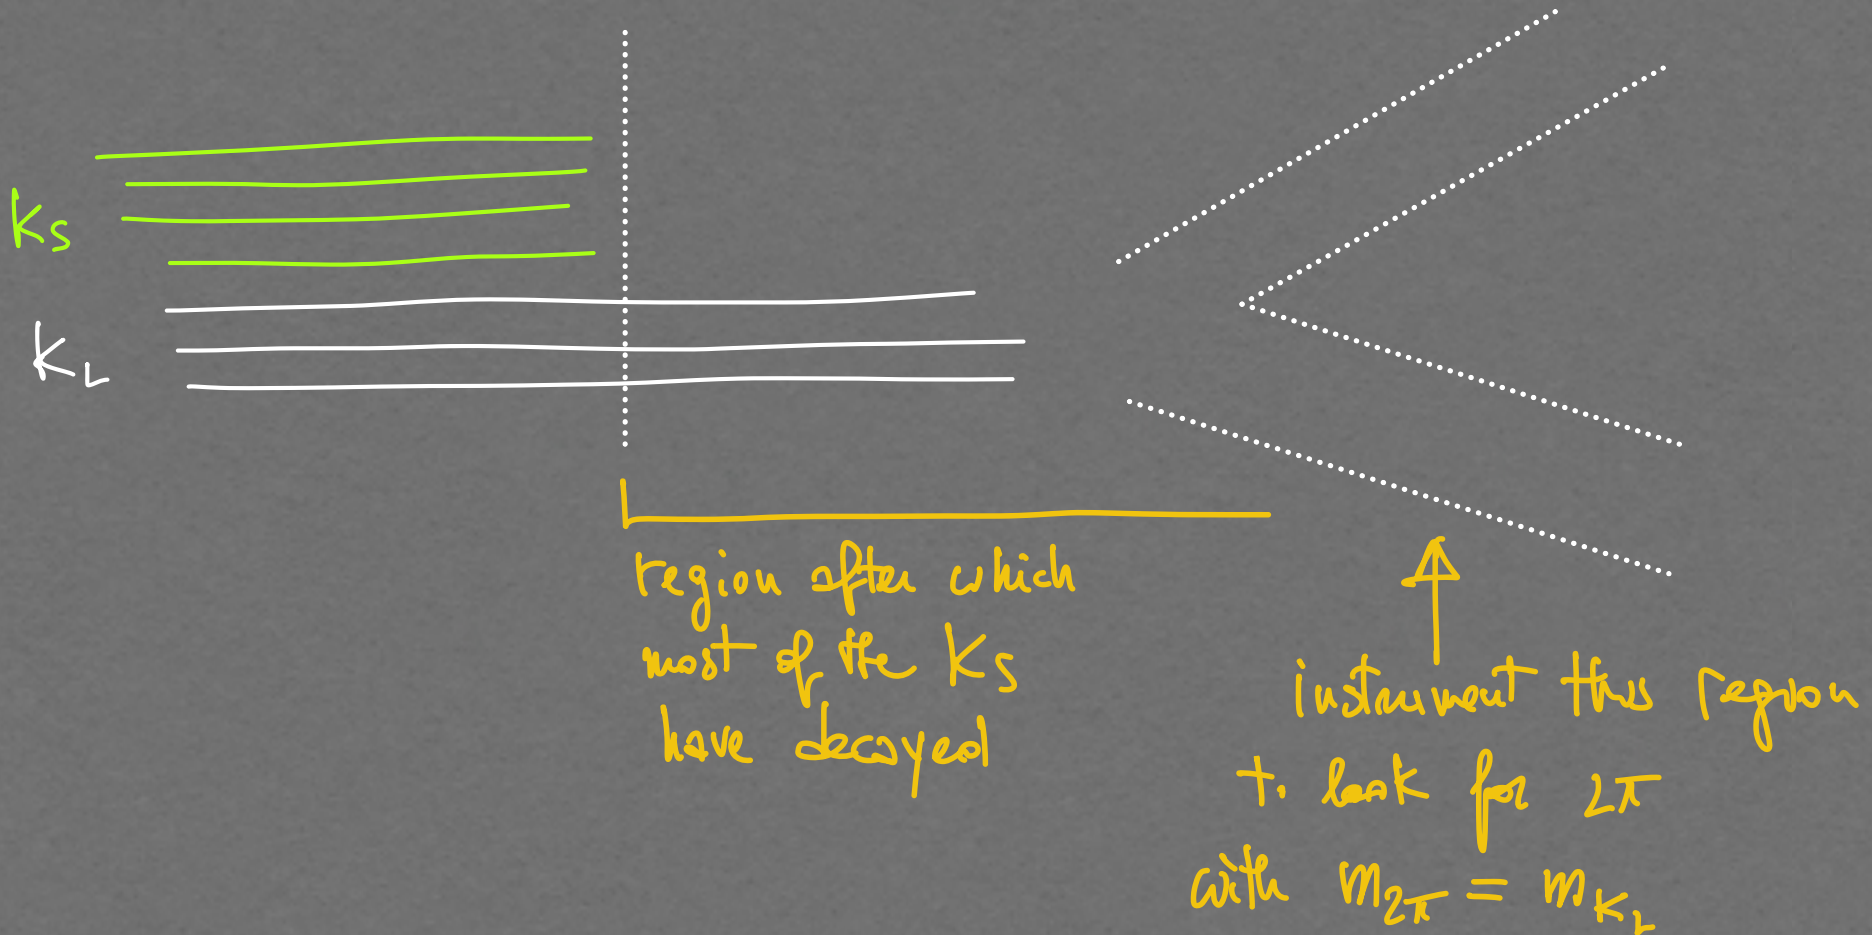 Ks
KL
region after which
most of the Ks
have decayed
instrument this region
to look for 2π
with m2π = mKL